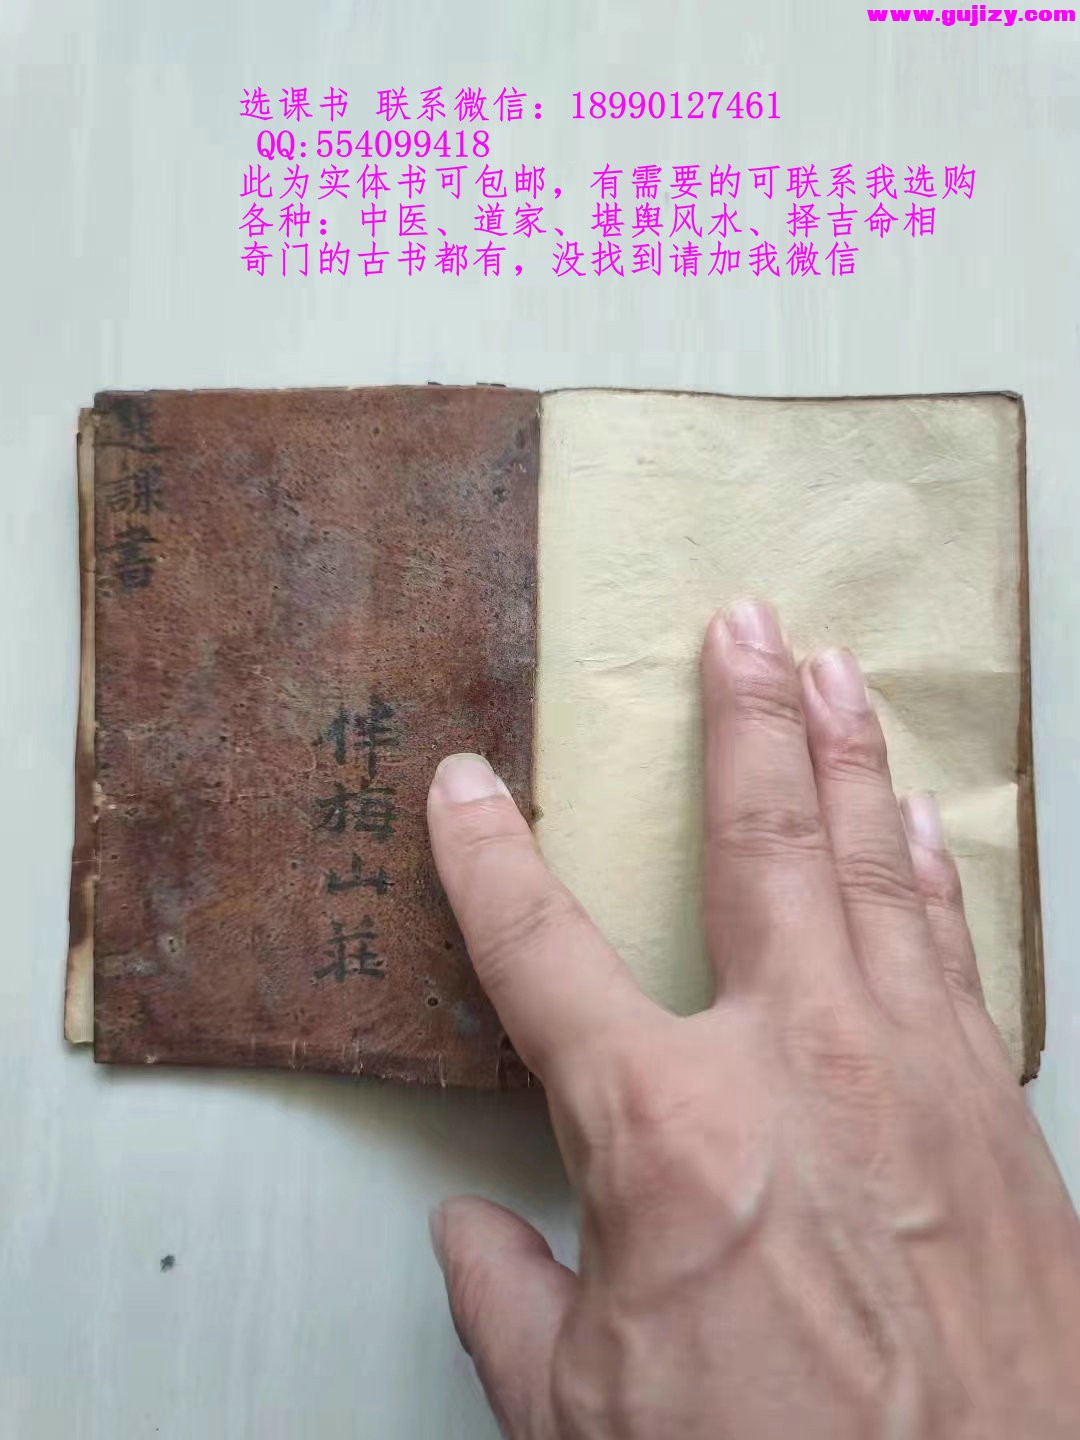 www.gujizy.com
选课书 联系微信：18990127461
QQ:554099418
此为实体书可包邮，有需要的可联系我选购
各种：中医、道家、堪舆风水、择吉命相
奇门的古书都有，没找到请加我微信
選課書
伴梅山莊